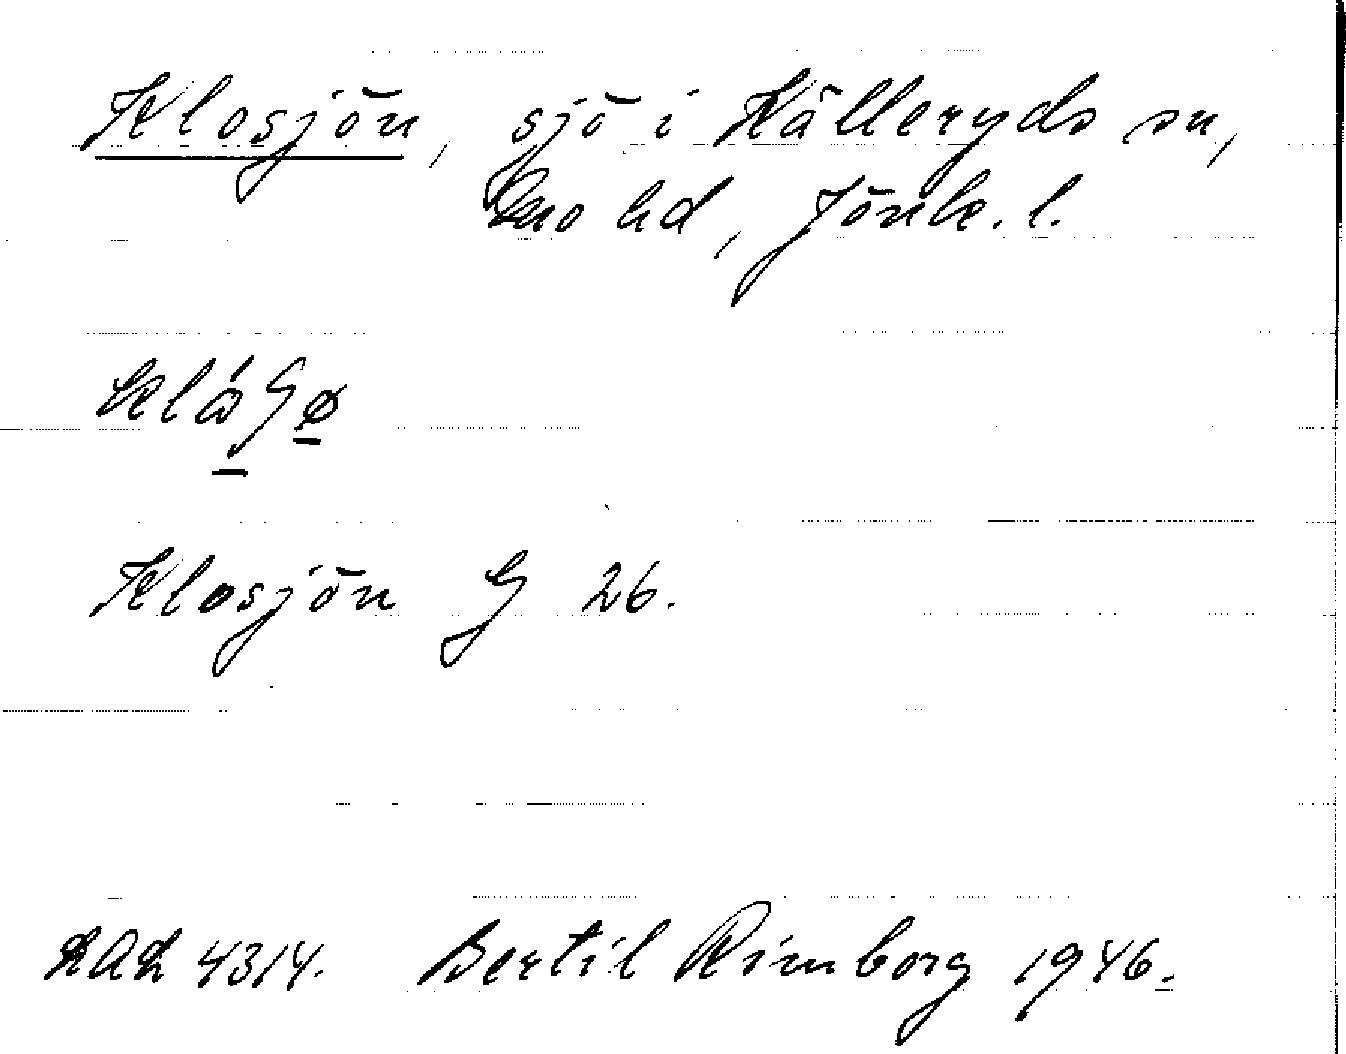 Klosjön, sjö i Källeryds sn,
Mo hd, Jönk. l.
Klosjön G 26.
LAL 4314. Bertil Rimborg 1946.